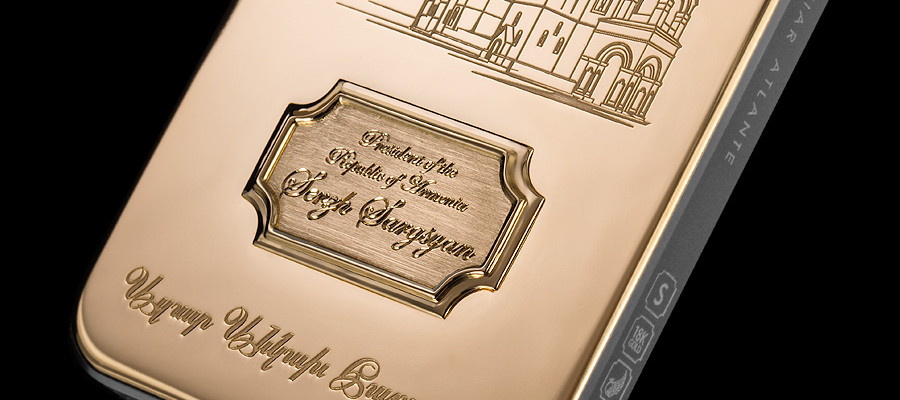 President of the
Republic of Armenia
Serzh Sargsyan
Ազատ Անկախ
ATLANTE
S
18K
GOLD